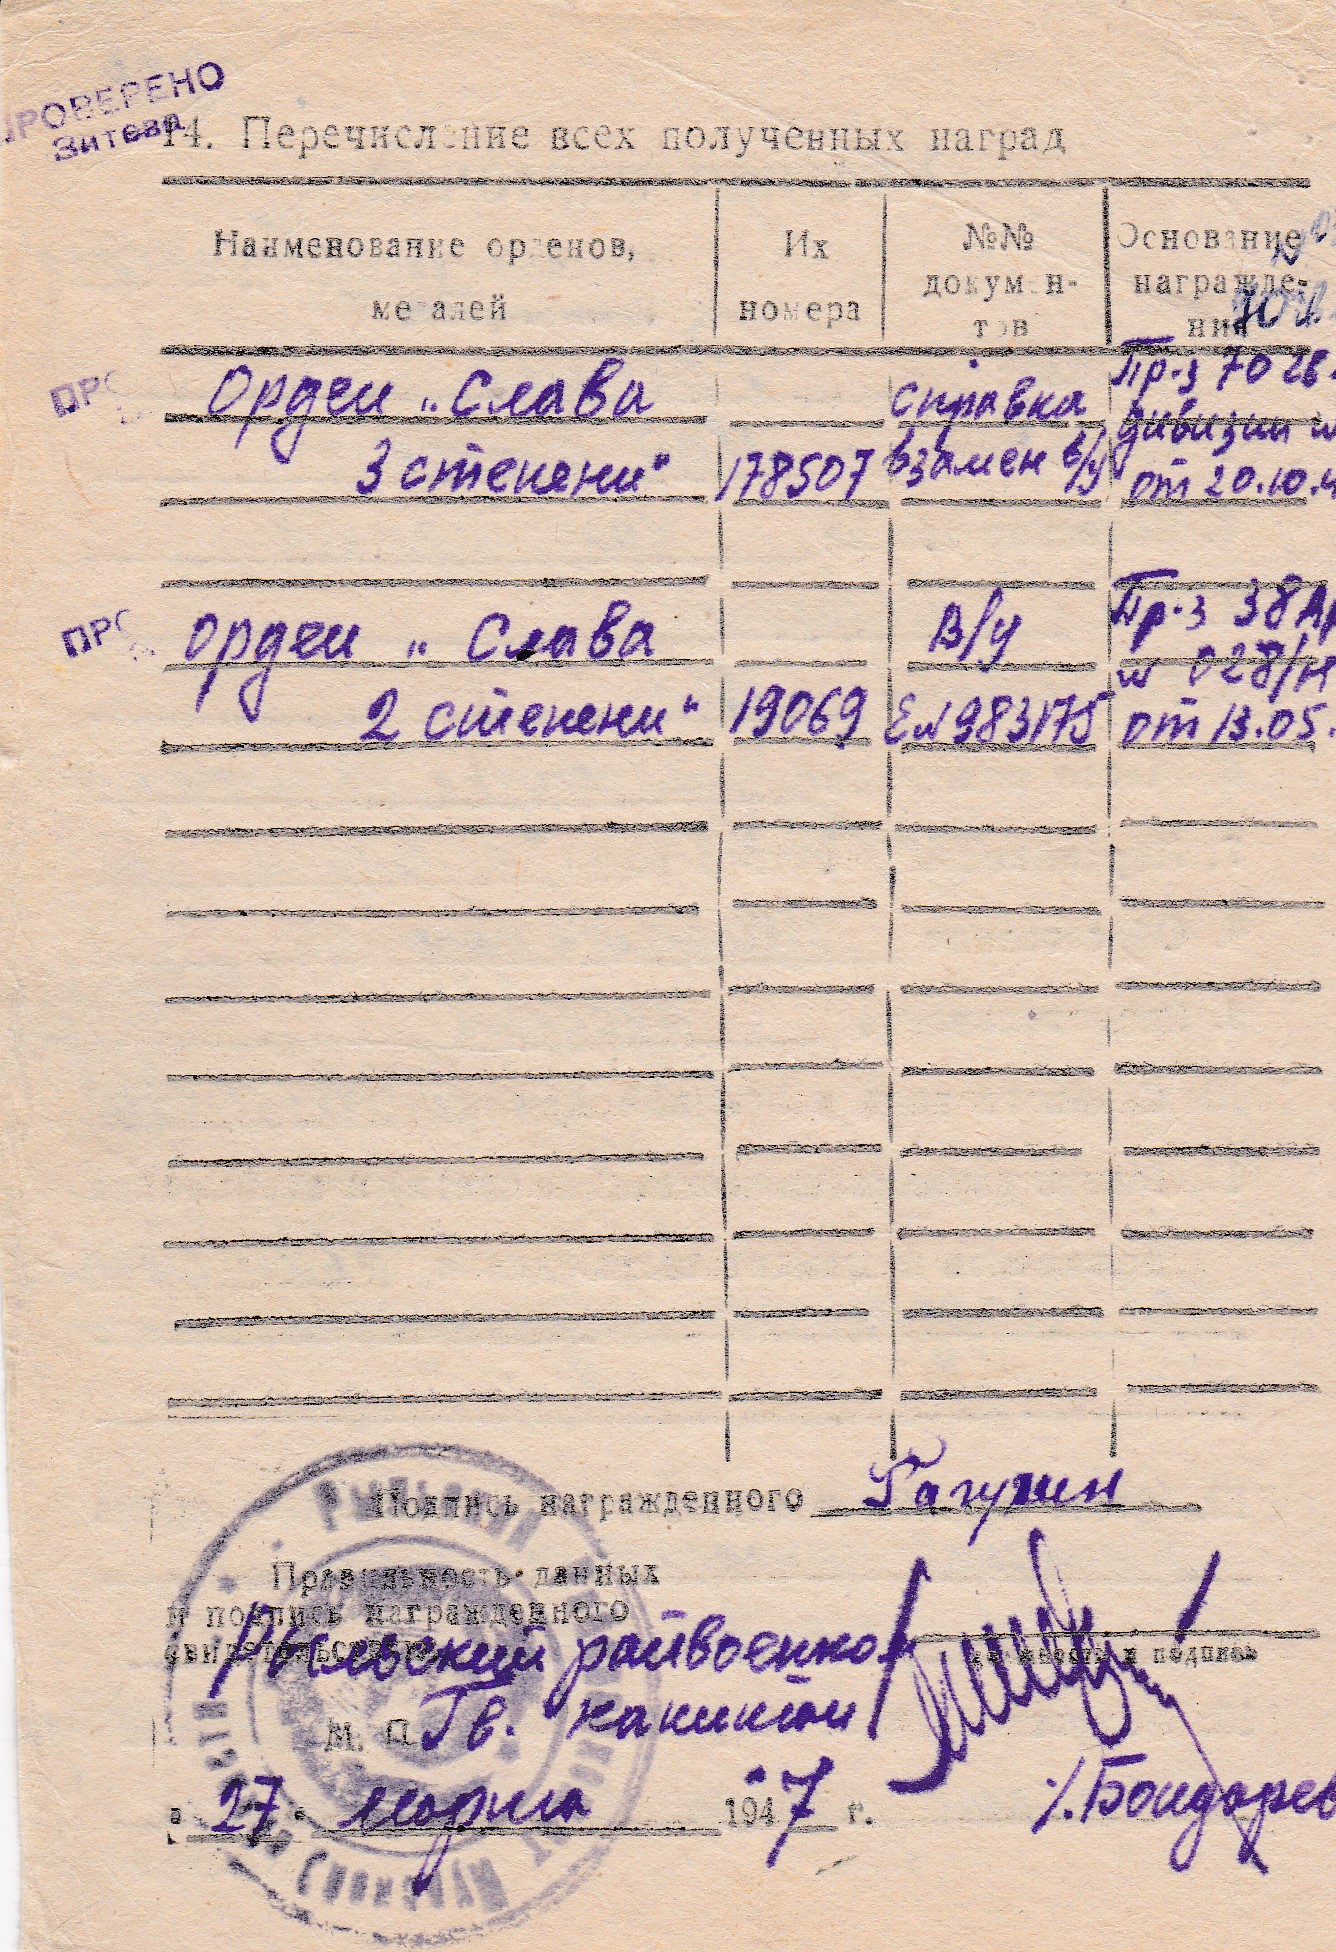 ПРОВЕРЕНО
Зитева
14. Перечисление всех полученных наград
Наименование орденов, медалей
Их номера
№№ докумен-тов
Основание награжде-ния
Орден „Слава
3 степени"
178507
справка
взамен в/у
Пр-з 70 гв.
дивизии №
от 20.10.4
Орден „Слава
2 степени"
19069
В/у
Е№983175
Пр-з 38 Ар
№ 028/н
от 13.05.
Подпись награжденного Гагулин
Правильность данных
и подпись награжденного
свидетельствую
Рыльский райвоенком
должность и подпись
М. П. Гв. капитан
/.Бондарев
„ 27 " марта 1947 г.